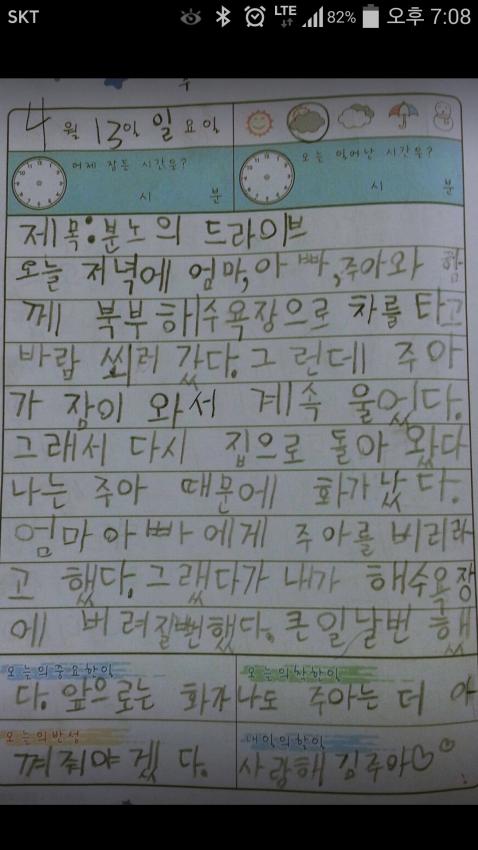 SKT LTE 82% 오후 7:08
4월 13일 일요일
어제 잠든 시간은?
오늘 일어난 시간은?
시 분
시 분
제목:분노의 드라이브
오늘 저녁에 엄마,아빠,주아와 함
께 북부해수욕장으로 차를 타고
바람 쐬러 갔다.그런데 주아
가 잠이 와서 계속 울었다.
그래서 다시 집으로 돌아 왔다
나는 주아 때문에 화가 났다.
엄마아빠에게 주아를 버리라
고 했다.그랬다가 내가 해수욕장
에 버려질뻔했다.큰일날번 했
오늘의 중요한일
오늘의 착한일
다.앞으로는 화가나도 주아는 더 아
오늘의 반성
내일의 할일
껴줘야겠다.
사랑해 김주아♡♡